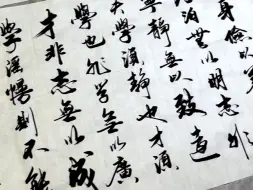 身儉以
泊無以明志非
靜無以致遠
夫學須靜也才須
學也非学無以廣
才非志無以成
學滛慢則不能